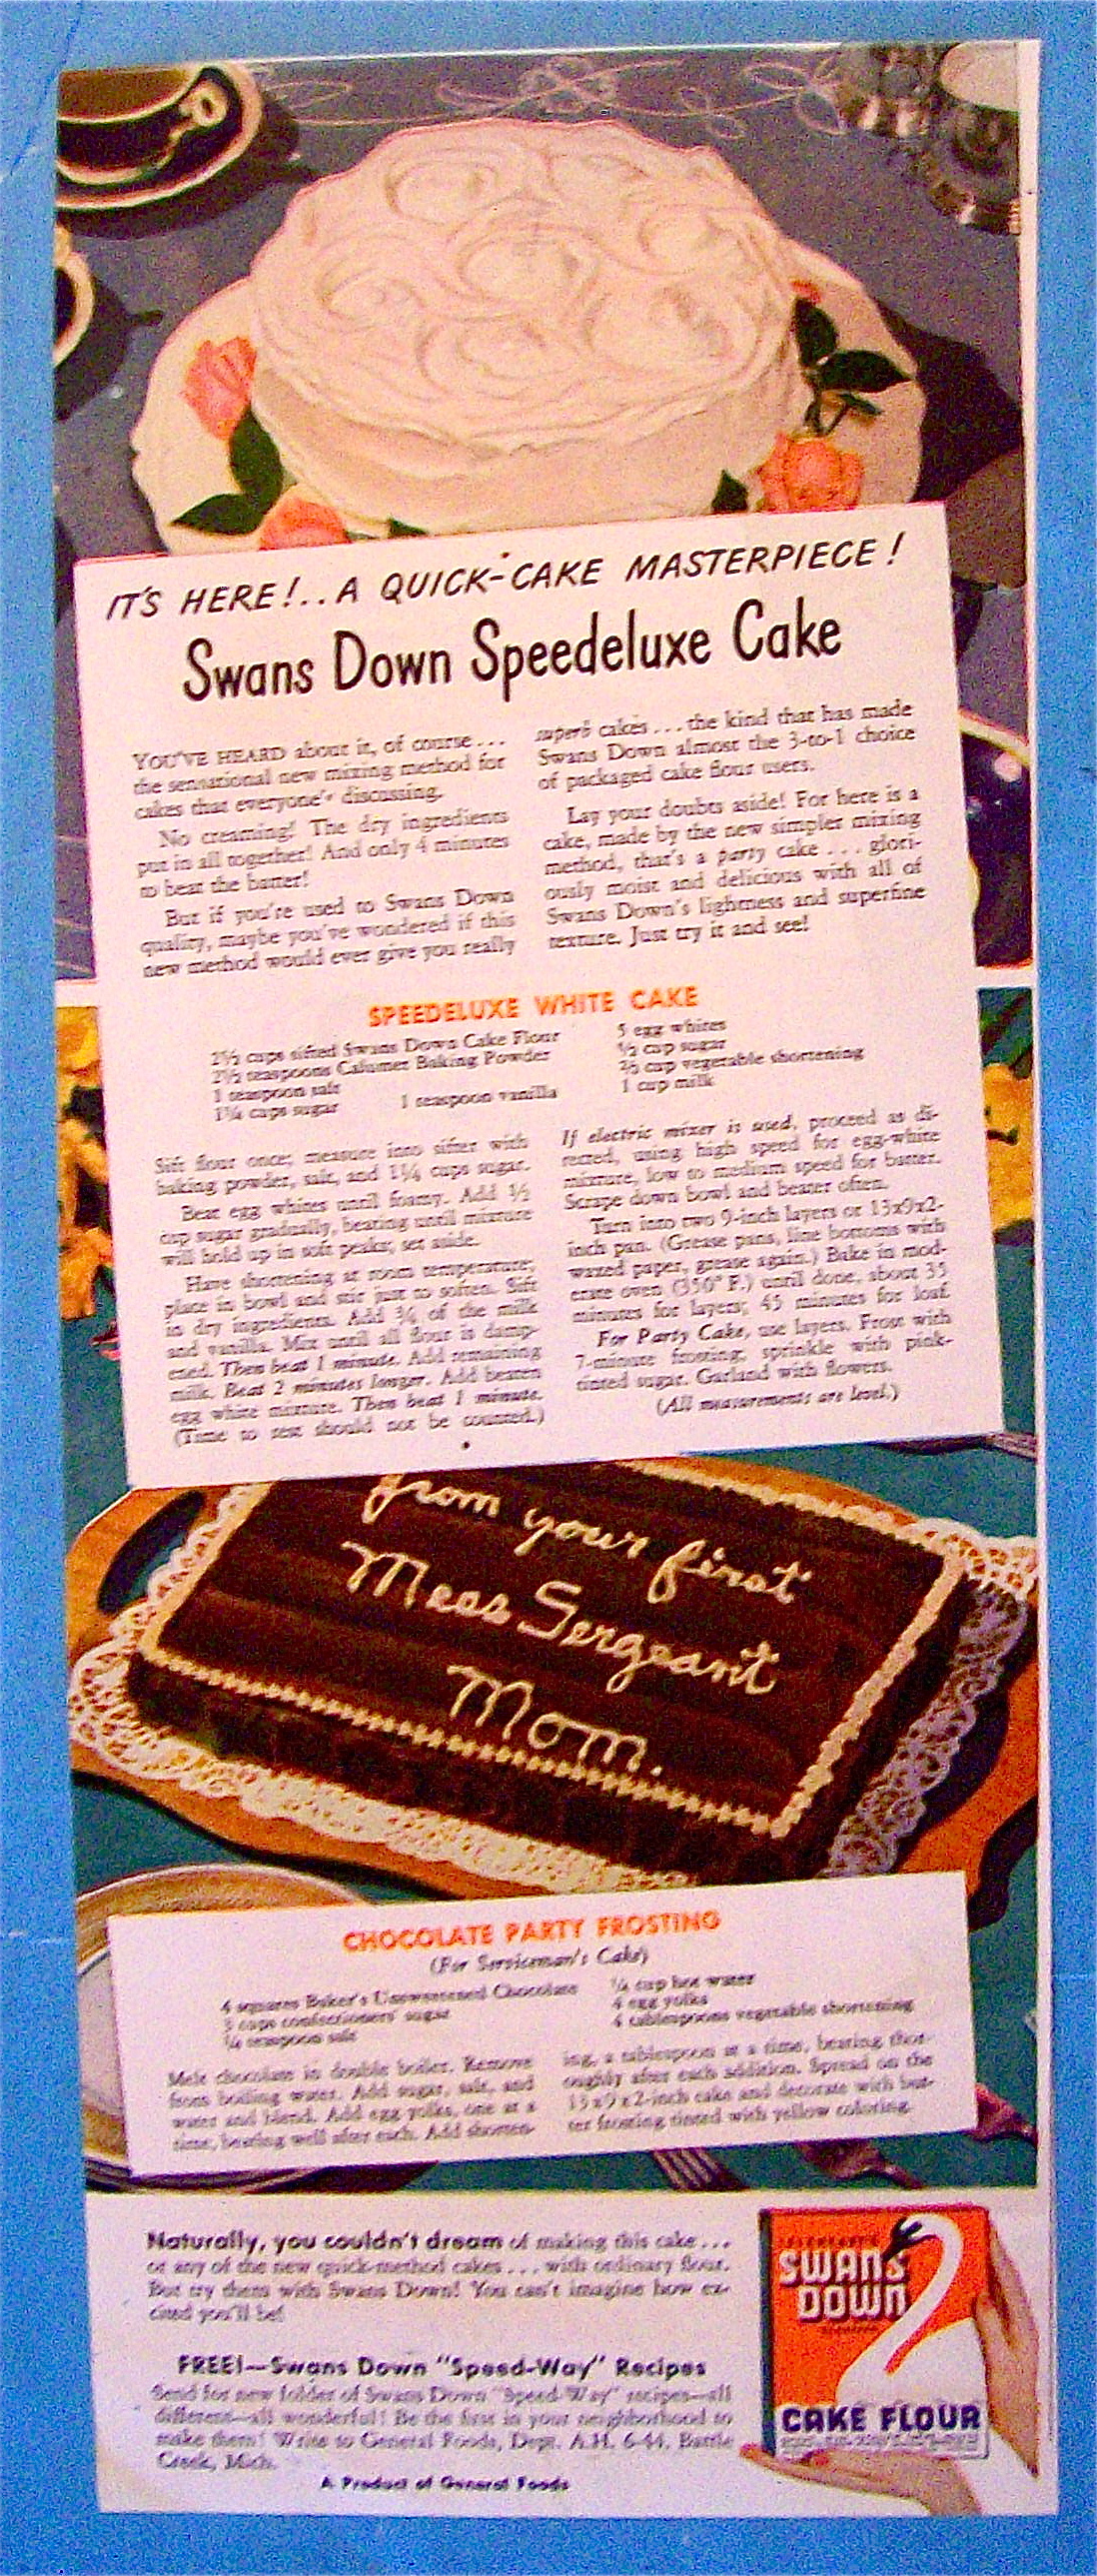 IT'S HERE!..A QUICK-CAKE MASTERPIECE!
Swans Down Speedeluxe Cake
YOU'VE HEARD about it, of course...
the sensational new mixing method for
cakes that everyone's discussing.
No creaming! The dry ingredients
put in all together! And only 4 minutes
to beat the batter!
But if you're used to Swans Down
quality, maybe you've wondered if this
new method would ever give you really
superb cakes...the kind that has made
Swans Down almost the 3-to-1 choice
of packaged cake flour users.
Lay your doubts aside! For here is a
cake, made by the new simpler mixing
method, that's a party cake...glori-
ously moist and delicious with all of
Swans Down's lightness and superfine
texture. Just try it and see!
SPEEDELUXE WHITE CAKE
cups sifted Swans Down Cake Flour
2½ teaspoons Calumet Baking Powder
1 teaspoon salt
1¼ cups sugar
1 teaspoon vanilla
5 egg whites
½ cup sugar
⅔ cup vegetable shortening
1 cup milk
Sift flour once; measure into sifter with
baking powder, salt, and 1¼ cups sugar.
Beat egg whites until foamy. Add ½
cup sugar gradually, beating until mixture
will hold up in soft peaks; set aside.
Have shortening at room temperature;
place in bowl and stir just to soften. Sift
in dry ingredients. Add ¾ of the milk
and vanilla. Mix until all flour is damp-
ened. Then beat 1 minute. Add remaining
milk. Beat 2 minutes longer. Add beaten
egg white mixture. Then beat 1 minute.
(Time to rest should not be counted.)
If electric mixer is used, proceed as di-
rected, using high speed for egg-white
mixture, low to medium speed for batter.
Scrape down bowl and beater often.
Turn into two 9-inch layers or 13x9x2-
inch pan. (Grease pans, line bottoms with
waxed paper, grease again.) Bake in mod-
erate oven (350° F.) until done, about 35
minutes for layers; 45 minutes for loaf.
For Party Cake, use layers. Frost with
7-minute frosting; sprinkle with pink-
tinted sugar. Garland with flowers.
(All measurements are level.)
from your first
Mess Sergeant
Mom.
CHOCOLATE PARTY FROSTING
(For Serviceman's Cake)
4 squares Baker's Unsweetened Chocolate
3 cups confectioners' sugar
¼ teaspoon salt
¼ cup hot water
4 egg yolks
4 tablespoons vegetable shortening
Melt chocolate in double boiler. Remove
from boiling water. Add sugar, salt, and
water and blend. Add egg yolks, one at a
time, beating well after each. Add shorten-
ing, a tablespoon at a time, beating thor-
oughly after each addition. Spread on the
13x9x2-inch cake and decorate with but-
ter frosting tinted with yellow coloring.
Naturally, you couldn't dream of making this cake...
or any of the new quick-method cakes...with ordinary flour.
But try them with Swans Down! You can't imagine how ex-
cited you'll be!
FREE!—Swans Down "Speed-Way" Recipes
Send for new folder of Swans Down "Speed-Way" recipes—all
different—all wonderful! Be the first in your neighborhood to
make them! Write to General Foods, Dept. A.H. 6-44, Battle
Creek, Mich.
A Product of General Foods
SWANS
DOWN
CAKE FLOUR